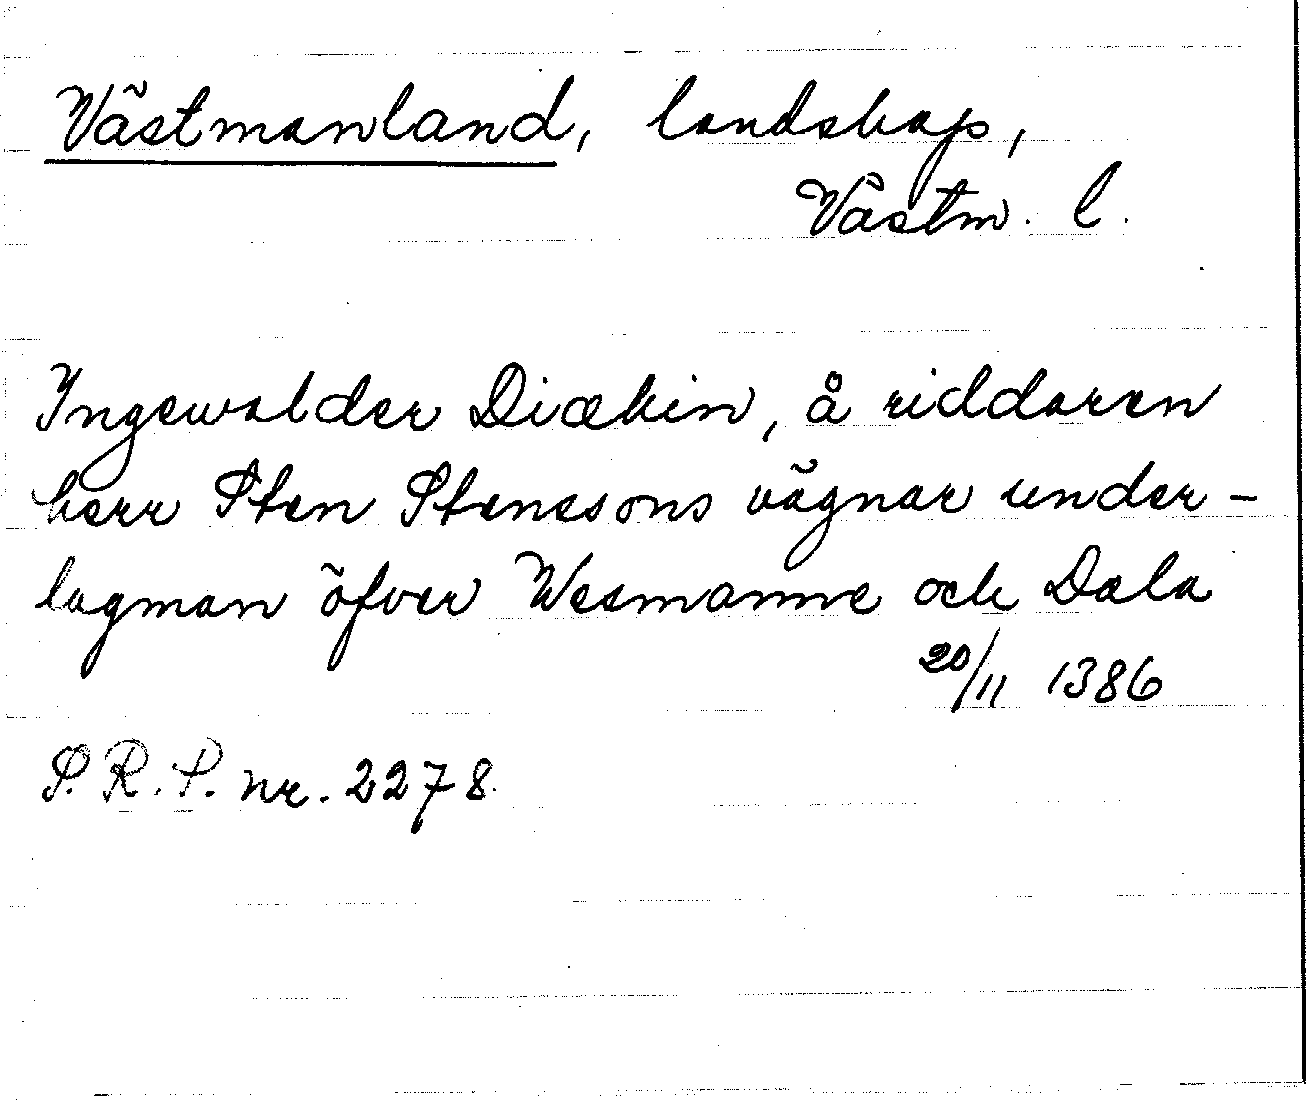 Västmanland, landskap,
Västm. l.
Ingewalder Diækin, å riddaren
herr Sten Stenssons vägnar under-
lagman öfver Wesmanne och Dala
20/11 1386
S.R.P. nr. 2278.